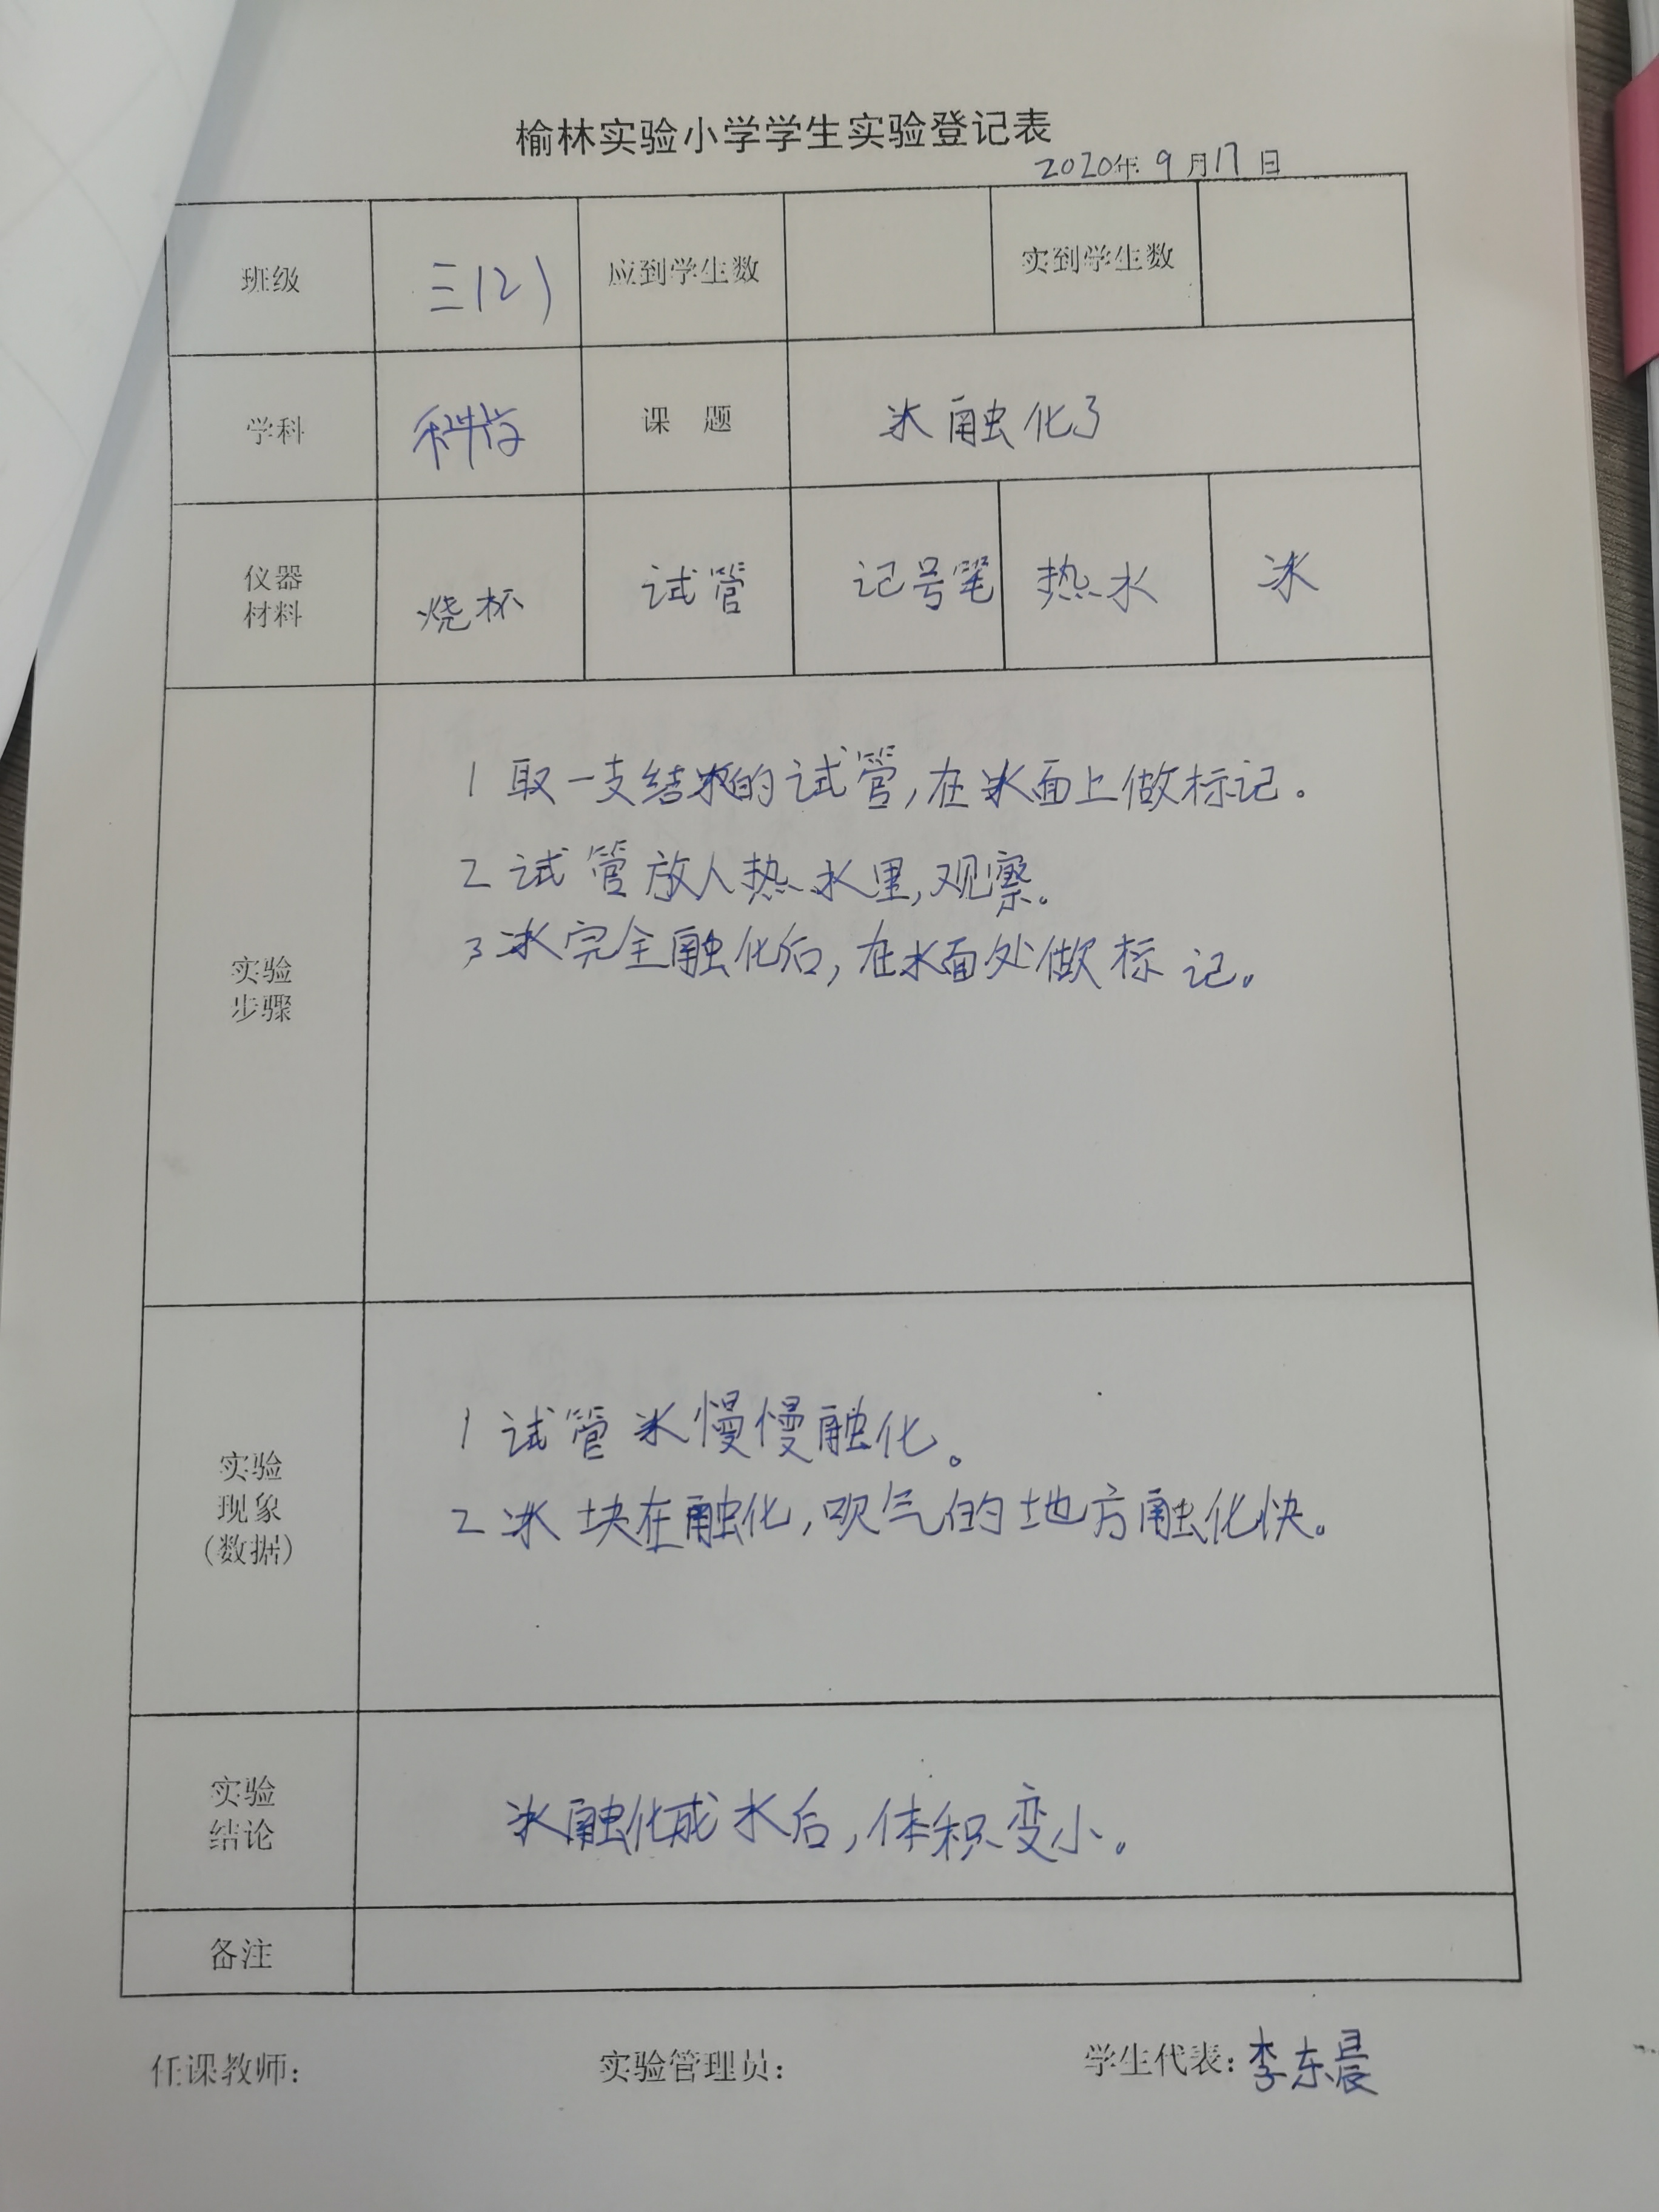 榆林实验小学学生实验登记表
2020年 9月17日
班级 三(2) 应到学生数 实到学生数
学科 科学 课 题 冰融化了
仪器
材料
烧杯 试管 记号笔 热水 冰
1 取一支结冰的试管,在冰面上做标记。
2 试管放入热水里,观察。
3 冰完全融化后,在水面处做标记。
实验
步骤
1 试管冰慢慢融化。
2 冰块在融化,吹气的地方融化快。
实验
现象
(数据)
实验
结论
冰融化成水后,体积变小。
备注
任课教师: 实验管理员: 学生代表:李东晨